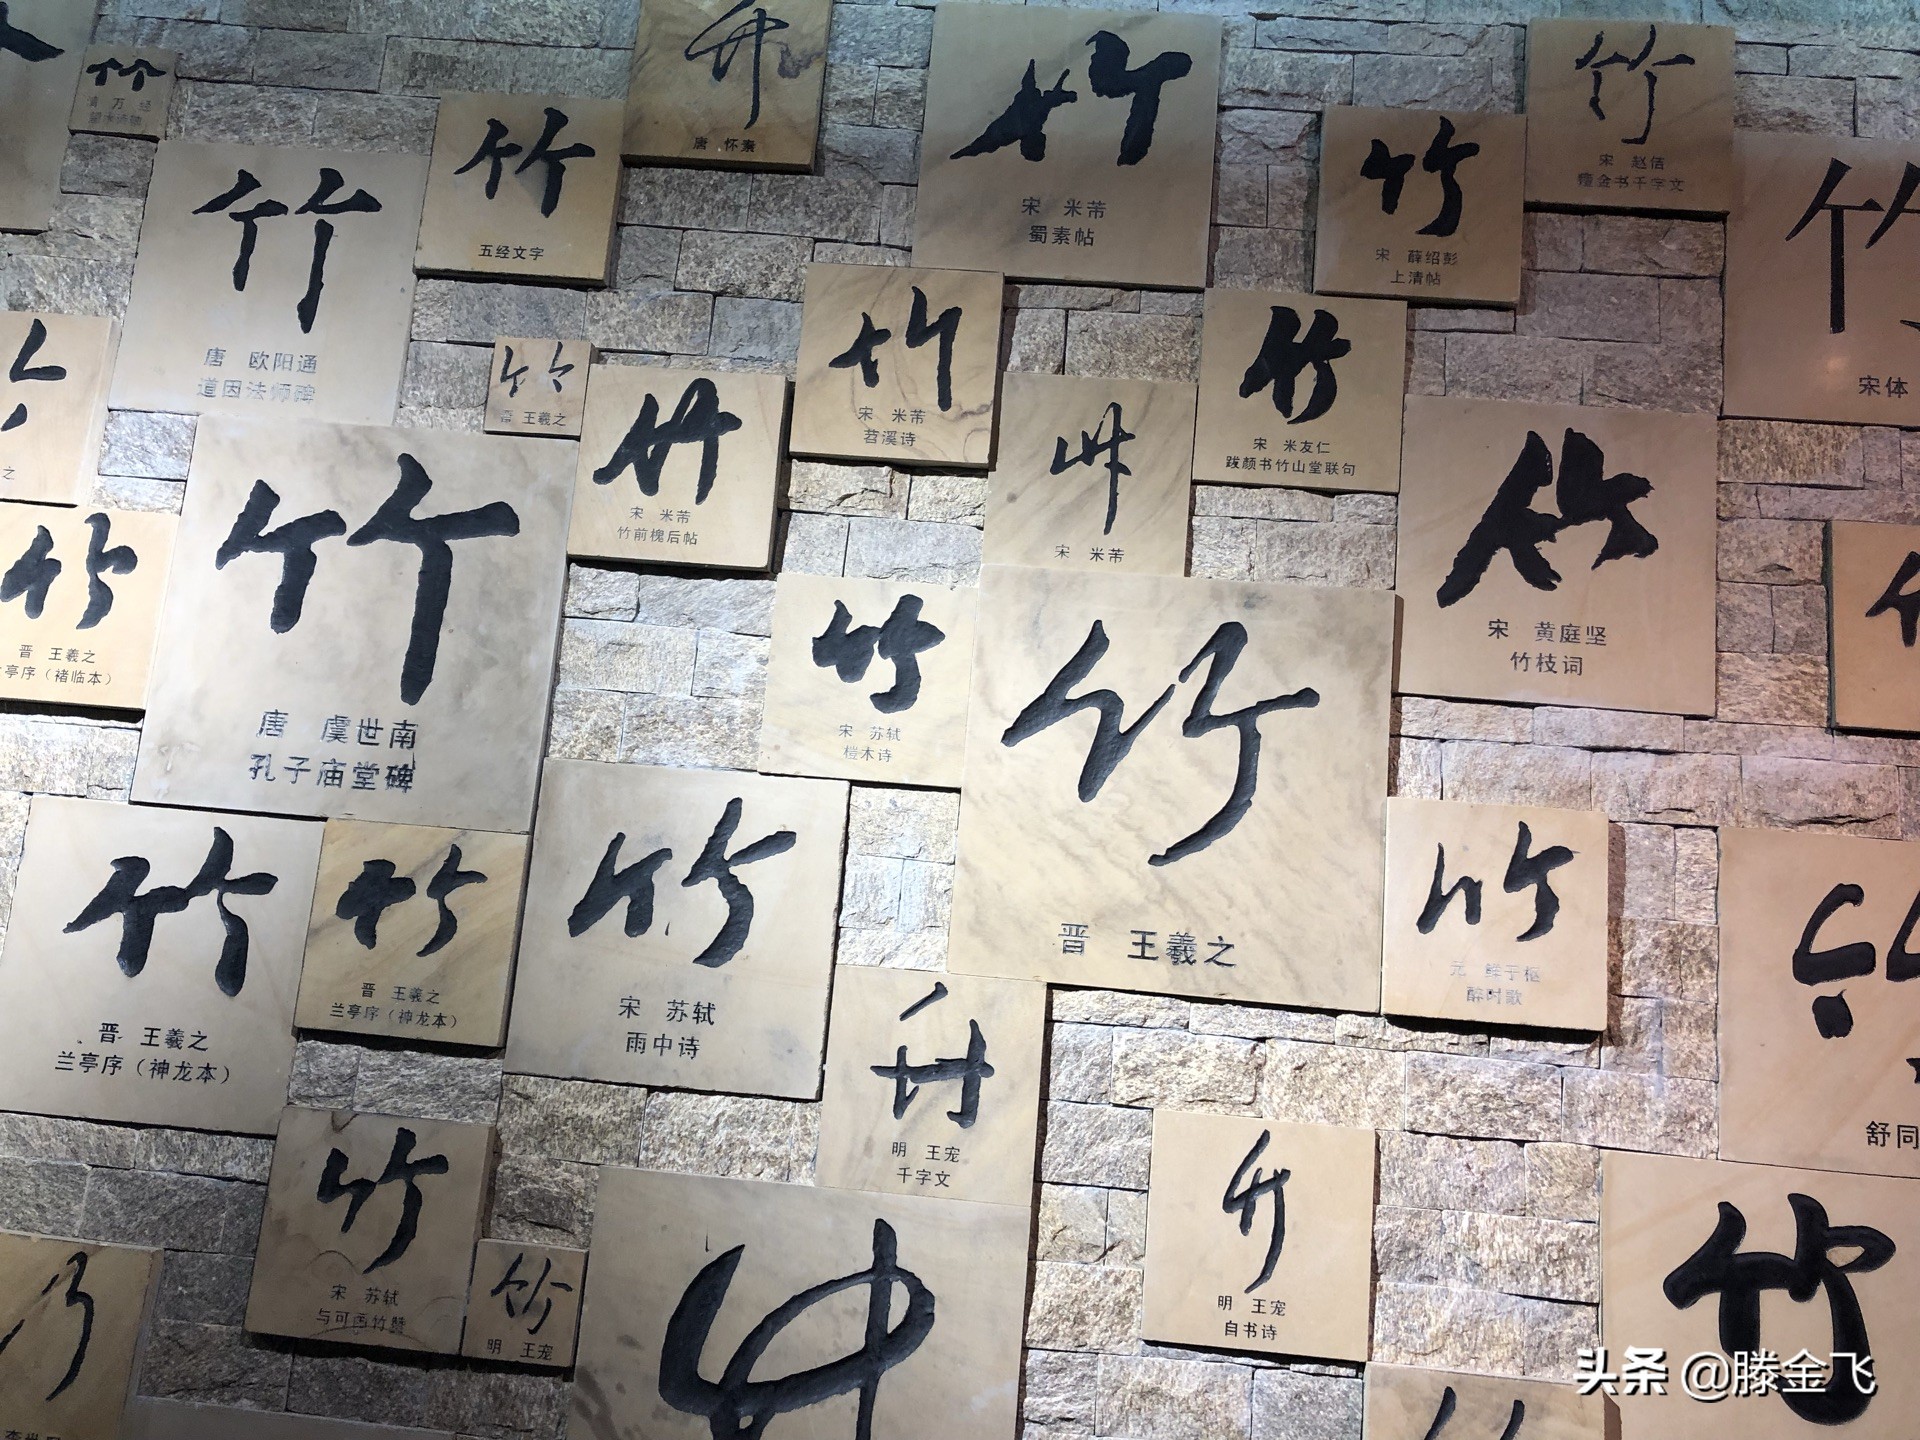 竹
竹
唐 怀素
竹
宋 米芾
蜀素帖
竹
宋 赵佶
瘦金书千字文
竹
五经文字
竹
宋 薛绍彭
上清帖
竹
唐 欧阳通
道因法师碑
竹
宋体
竹
晋 王羲之
竹
宋 米芾
苕溪诗
竹
宋 米友仁
跋颜书竹山堂联句
之
竹
宋 米芾
竹前槐后帖
竹
宋 米芾
竹
宋 黄庭坚
竹枝词
竹
晋 王羲之
亭序（褚临本）
竹
唐 虞世南
孔子庙堂碑
竹
宋 苏轼
桤木诗
竹
晋 王羲之
竹
元 鲜于枢
醉时歌
竹
晋 王羲之
兰亭序（神龙本）
竹
晋 王羲之
兰亭序（神龙本）
竹
宋 苏轼
雨中诗
竹
明 王宠
千字文
舒同
竹
宋 苏轼
与可画竹
竹
明 王宠
竹
竹
明 王宠
自书诗
竹
头条 @滕金飞